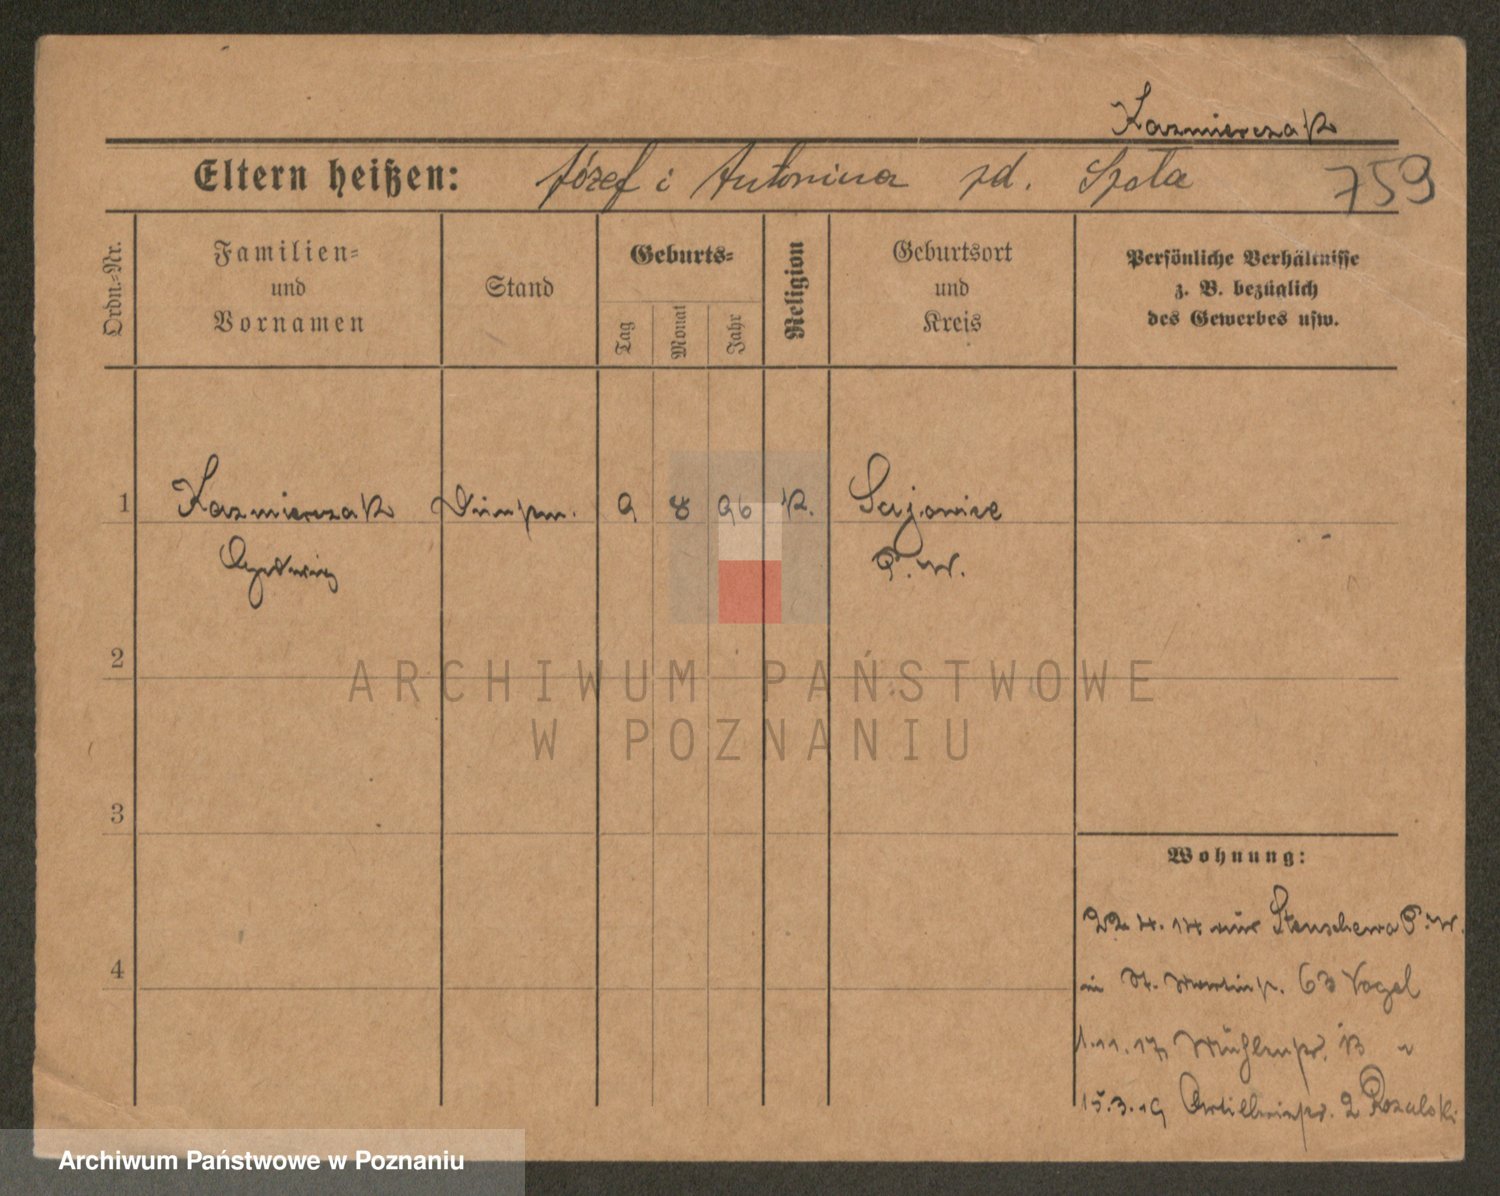 Kazmierczak
Eltern heißen: Józef i Antonina zd. Szata 759
Ordn.-Nr.
Familien-
und
Vornamen
Stand
Geburts-
Tag
Monat
Jahr
Religion
Geburtsort
und
Kreis
Persönliche Verhältnisse
z. B. bezüglich
des Gewerbes usw.
1 Kazmierczak 9 8 96 K.
P. W.
2
ARCHIWUM PAŃSTWOWE
W POZNANIU
3
Wohnung:
22.4.14 aus Stenschewo P. W.
4
in St. Martinstr. 63 Vogel
1.11.17 Mühlenstr. 13 "
15.3.19 Artilleriestr. 2 Rozalski
Archiwum Państwowe w Poznaniu